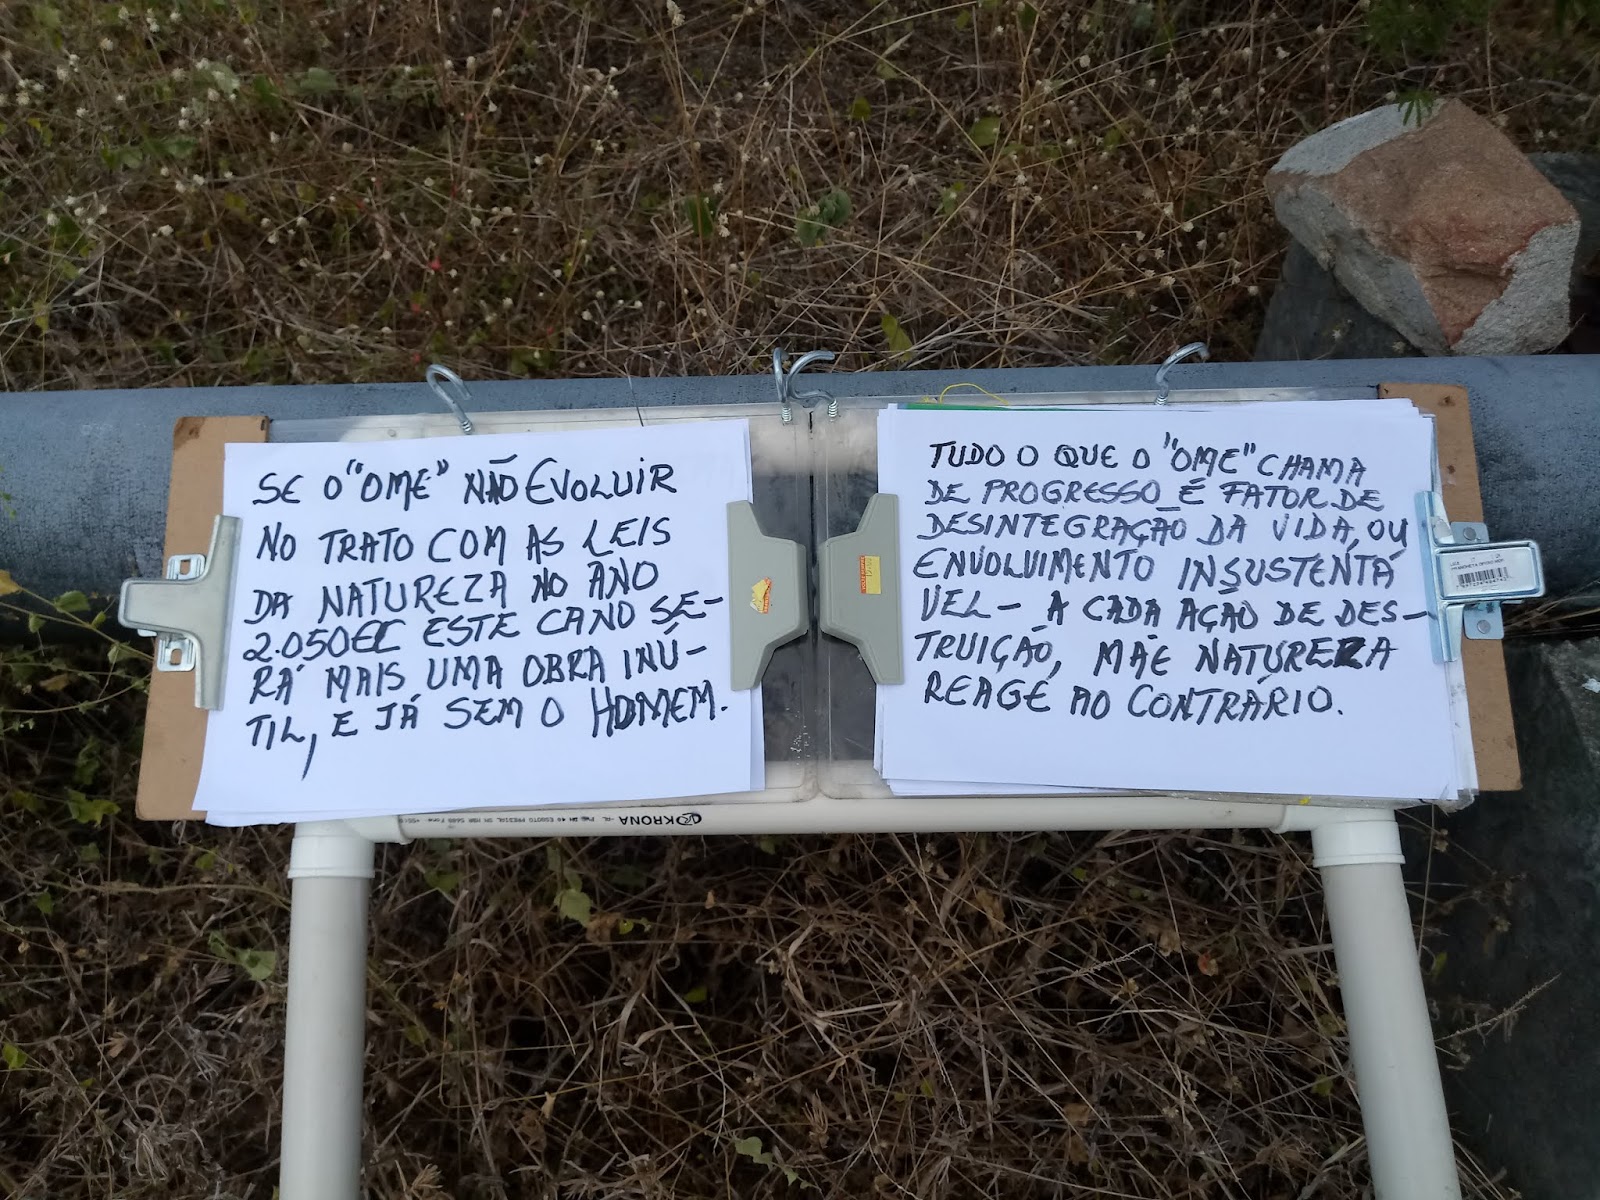 SE O "OME" NÃO EVOLUIR
NO TRATO COM AS LEIS
DA NATUREZA NO ANO
2.050EC ESTE CANO SE-
RÁ MAIS UMA OBRA INÚ-
TIL, E JÁ SEM O HOMEM.
TUDO O QUE O "OME" CHAMA
DE PROGRESSO É FATOR DE
DESINTEGRAÇÃO DA VIDA, OU
ENVOLVIMENTO INSUSTENTÁ
VEL - A CADA AÇÃO DE DES-
TRUIÇÃO, MÃE NATUREZA
REAGE AO CONTRÁRIO.
KRONA